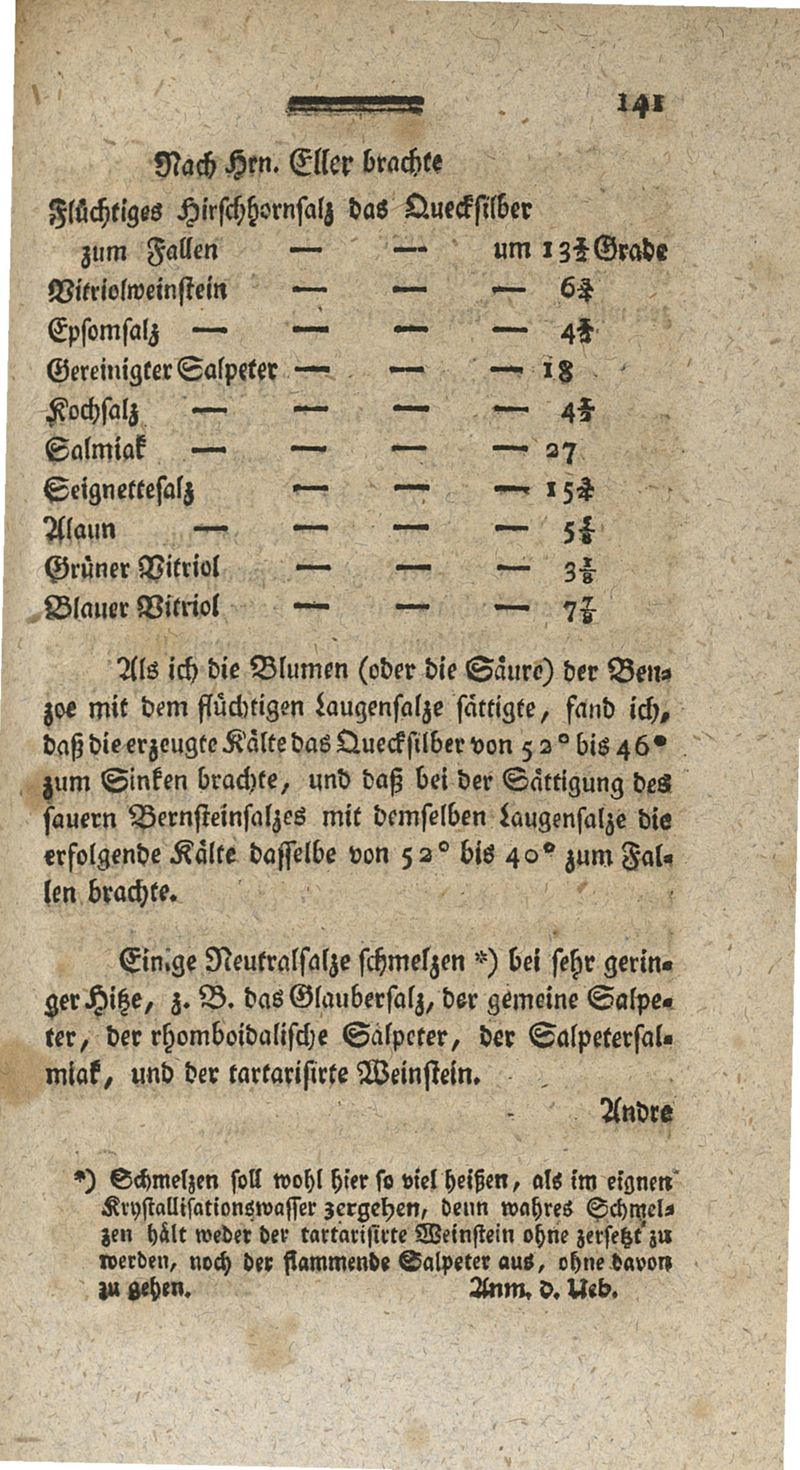 141
Nach Hrn. Eller brachte
Flüchtiges Hirschhornsalz das Quecksilber
zum Fallen — — um 13½ Grade
Vitriolweinstein — — — 6¾
Epsomsalz — — — — 4
Gereinigter Salpeter — — — 18
Kochsalz — — — — 4
Salmiak — — — — 27
Seignettesalz — — — 15¾
Alaun — — — — 5
Grüner Vitriol — — — 3⅛
Blauer Vitriol — — — 7⅞
Als ich die Blumen (oder die Säure) der Ben-
zoe mit dem flüchtigen Laugensalze sättigte, fand ich,
daß die erzeugte Kälte das Quecksilber von 52° bis 46°
zum Sinken brachte, und daß bei der Sättigung des
sauern Bernsteinsalzes mit demselben Laugensalze die
erfolgende Kälte dasselbe von 52° bis 40° zum Fal-
len brachte.
Einige Neutralsalze schmelzen *) bei sehr gerin-
ger Hitze, z. B. das Glaubersalz, der gemeine Salpe-
ter, der rhomboidalische Salpeter, der Salpetersal-
miak, und der tartarisirte Weinstein.
Andre
*) Schmelzen soll wohl hier so viel heißen, als im eignen
Krystallisationswasser zergehen, denn wahres Schmel-
zen hält weder der tartarisirte Weinstein ohne zersetzt zu
werden, noch der flammende Salpeter aus, ohne davon
zu gehen. Anm. d. Ueb.